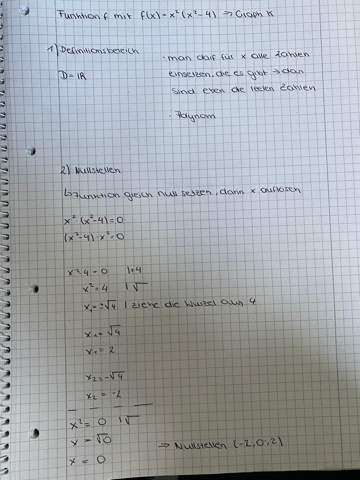 Funktion f mit f(x) = x² (x² - 4) ⇒ Graph K
1) Definitionsbereich
D = ℝ
· man darf für x alle Zahlen
einsetzen, die es gibt → dan
sind eben die reelen Zahlen
· Polynom
2) Nullstellen
↳ Funktion gleich null setzen, dann x auflösen
x² (x² - 4) = 0
(x² - 4) · x² = 0
x² - 4 = 0 | + 4
x² = 4 | √
x₁ = -√4 | ziehe die Wurzel aus 4
x₁ = √4
x₁ = 2
x₂ = -√4
x₂ = -2
x² = 0 | √
x = √0
x = 0
⇒ Nullstellen (-2, 0, 2)